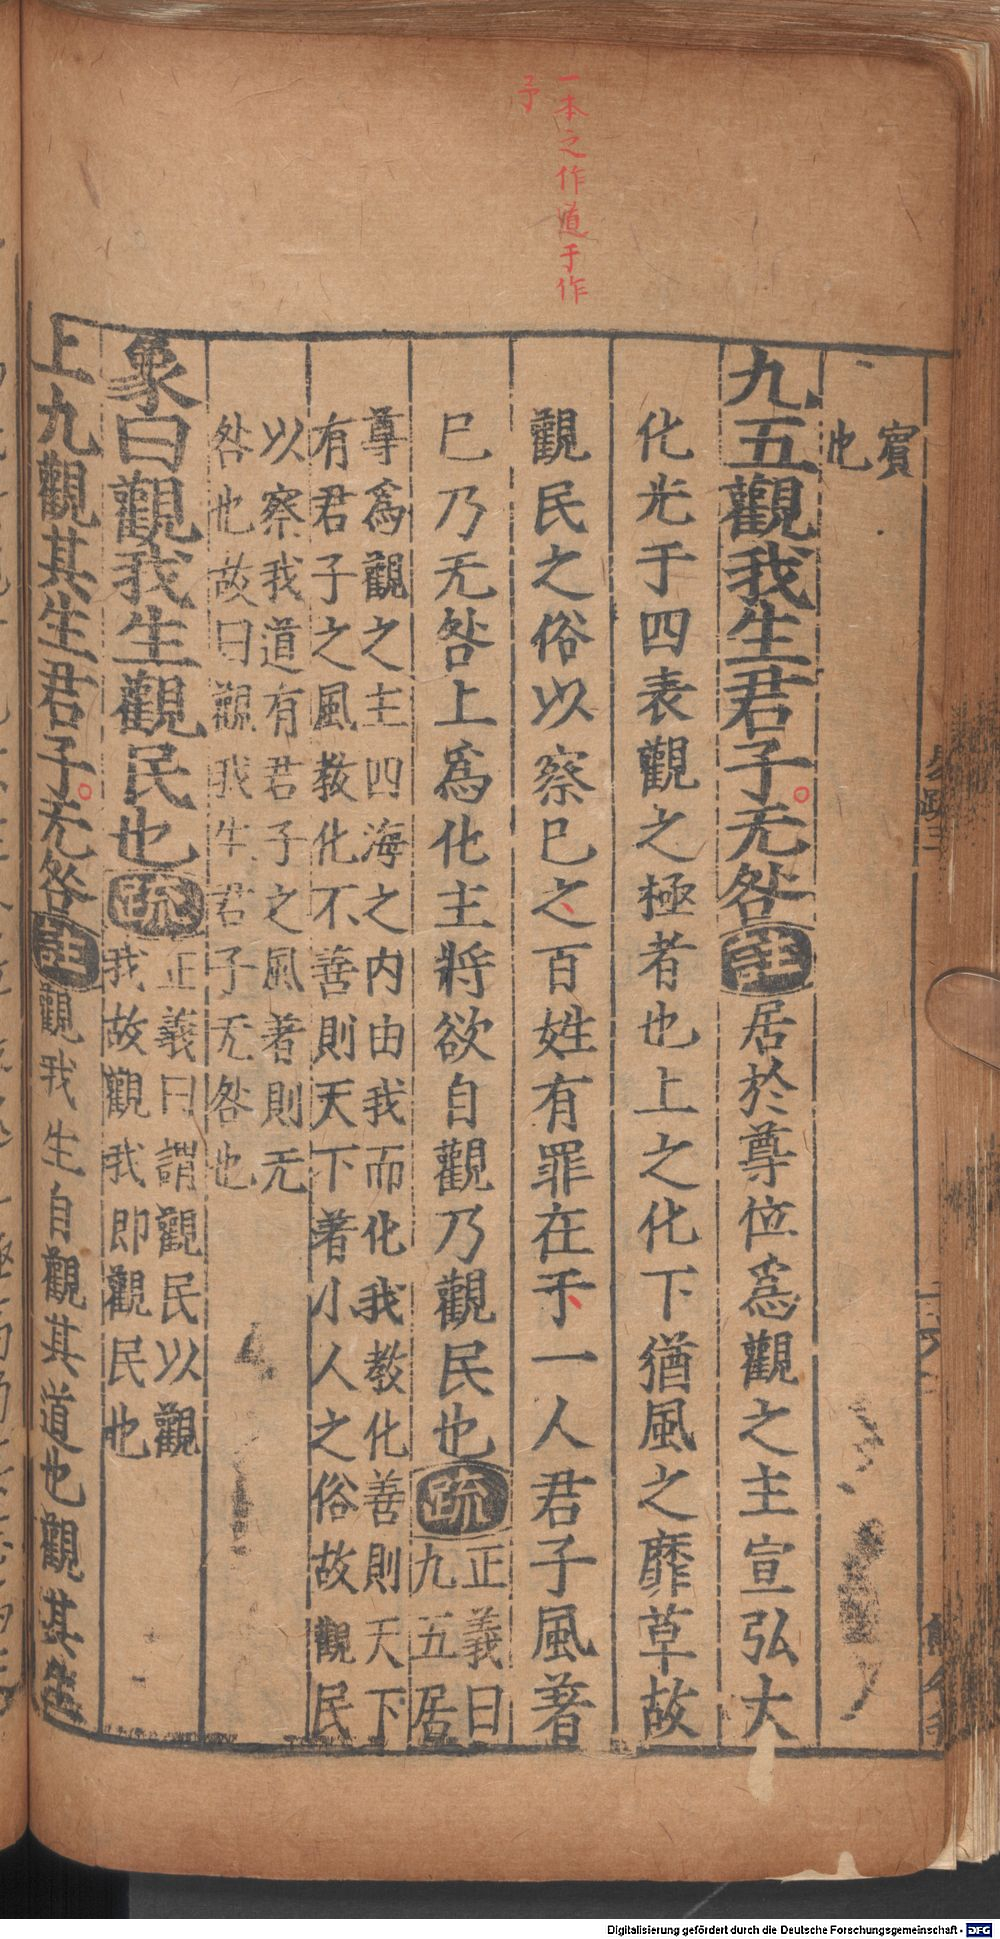 一本之作道于作
予
賓
也
九五觀我生君子无咎註居於尊位爲觀之主宣弘大
化光于四表觀之極者也上之化下猶風之靡草故
觀民之俗以察巳之百姓有罪在于一人君子風著
巳乃无咎上爲化主將欲自觀乃觀民也疏正義曰
九五居
尊爲觀之主四海之内由我而化我教化善則天下
有君子之風教化不善則天下著小人之俗故觀民
以察我道有君子之風著則无
咎也故曰觀我生君子无咎也
象曰觀我生觀民也疏正義曰謂觀民以觀
我故觀我即觀民也
上九觀其生君子无咎註觀我生自觀其道也觀其生
Digitalisierung gefördert durch die Deutsche Forschungsgemeinschaft - DFG